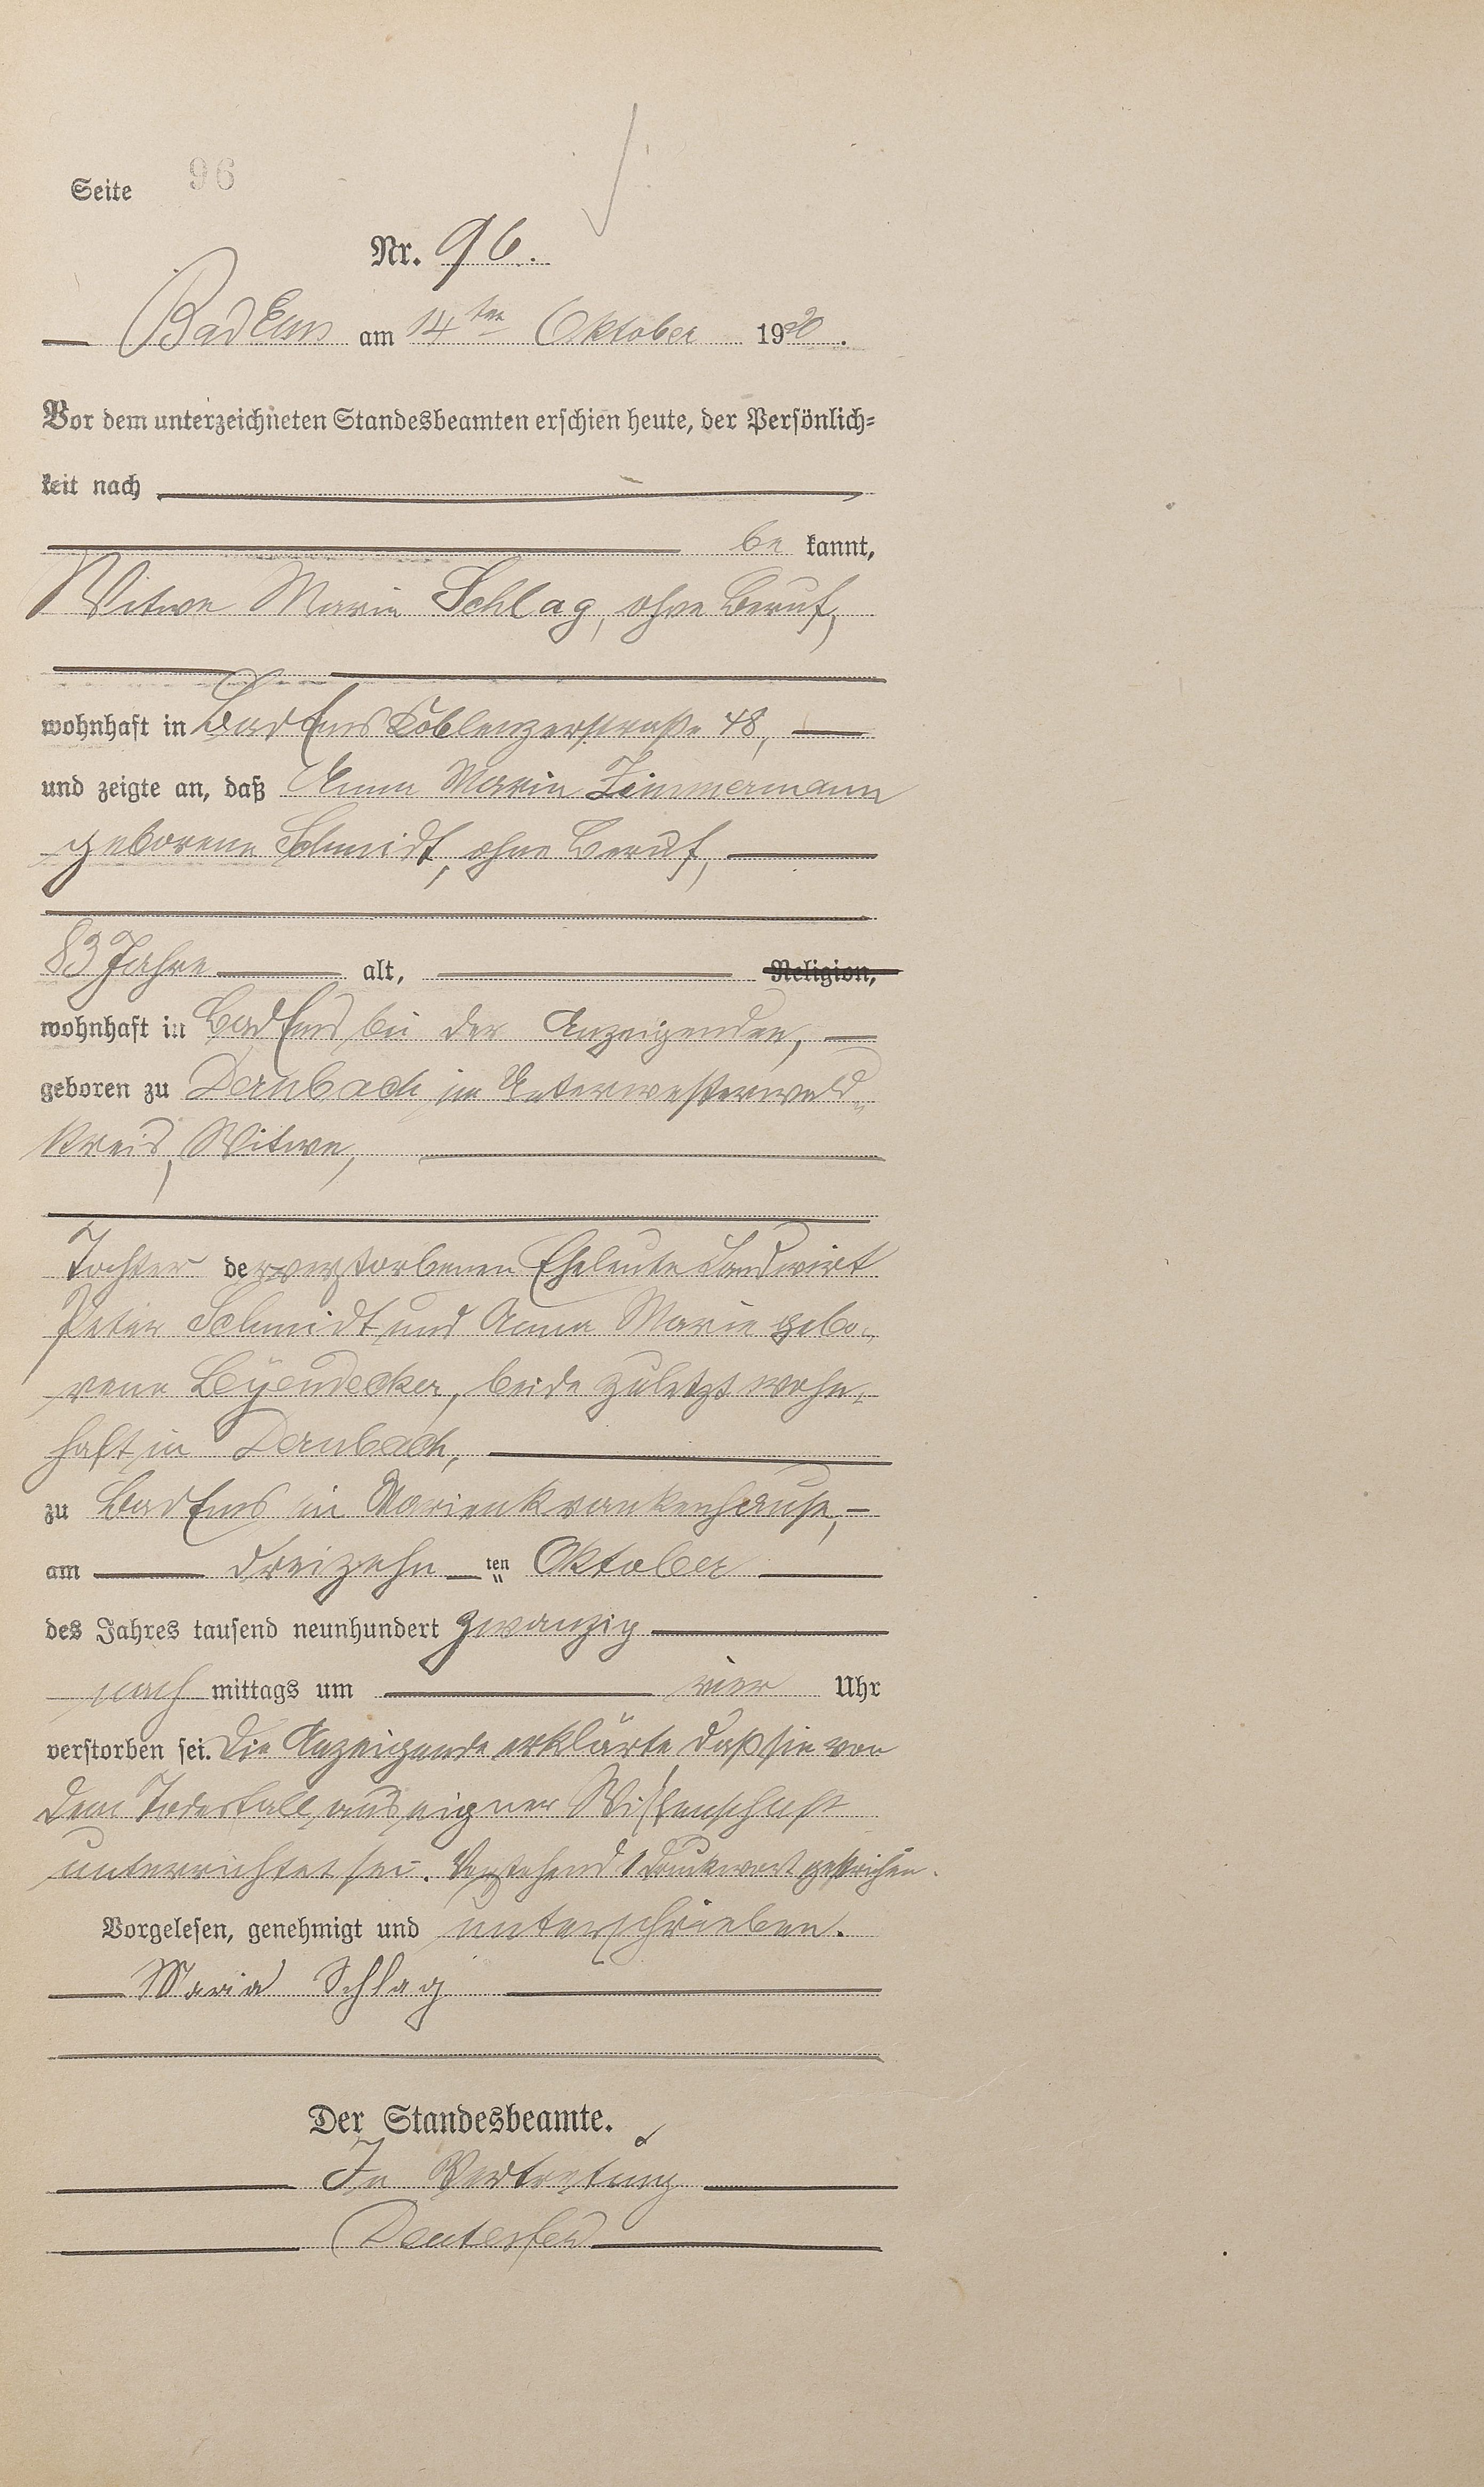 Seite 96
Nr. 96.
Bad Ems am 14ten Oktober 1920.
Vor dem unterzeichneten Standesbeamten erschien heute, der Persönlich-
keit nach
be kannt,
Witwe Marie Schlag, ohne Beruf,
wohnhaft in Bad Ems Koblenzerstraße 48,
und zeigte an, daß Anna Maria Zimmermann
geborene Schmidt, ohne Beruf,
83 Jahre alt, Religion,
wohnhaft in Bad Ems bei der Anzeigenden,
geboren zu Dernbach im Unterwesterwald-
kreis, Witwe,
Tochter der verstorbenen Eheleute Landwirt
Peter Schmidt und Anna Marie gebo-
rene Leÿendecker, beide zuletzt wohn-
haft in Dernbach,
zu Bad Ems im Marienkrankenhause,
am dreizehn ten Oktober
des Jahres tausend neunhundert zwanzig
nach mittags um vier Uhr
verstorben sei. Die Anzeigende erklärte, daß sie von
dem Todesfall aus eigner Wissenschaft
unterrichtet sei. Vorstehend 1 Druckwort gestrichen.
Vorgelesen, genehmigt und unterschrieben.
Maria Schlag
Der Standesbeamte.
In Vertretung